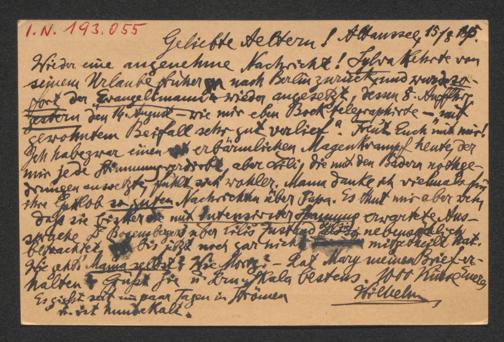 I.N. 193.055
Geliebte Aeltern! Altaussee, 15/8 1895
Wieder eine angenehme Nachricht! Sylva kehrte von
seinem Urlaube früher nach Berlin zurück und wurde so-
fort der Evangelimann wieder angesetzt, dessen 8. Aufführ.
gestern den 14 August – wie mir eben Bock telegraphirte – mit
gewohntem Beifall sehr gut verlief. Freut Euch mit mir!
Ich habe zwar einen erbärmlichen Magenkrampf heute der
mir jede Stimmung verdirbt, aber Lili, die mit den Bädern nothge-
drungen aussetzte, fühlt sich wohler. Mama danke ich vielmals für
ihre Gottlob so guten Nachrichten über Papa. Es thut mir aber leid,
daß sie mit Spannung erwartete Aus-
sprache D. über Lili's Zustand nebensächlich
betrachtet bis jetzt noch gar nicht mitgetheilt hat.
Wie geht's Mama selbst? Wie Moriz? – Hat Mary meinen Brief er-
halten? Grüßt sie u. bestens. 1000 Küsse Euer
Es gießt seit ein paar Tagen in Strömen
u. ist hundekalt.
Wilhelm